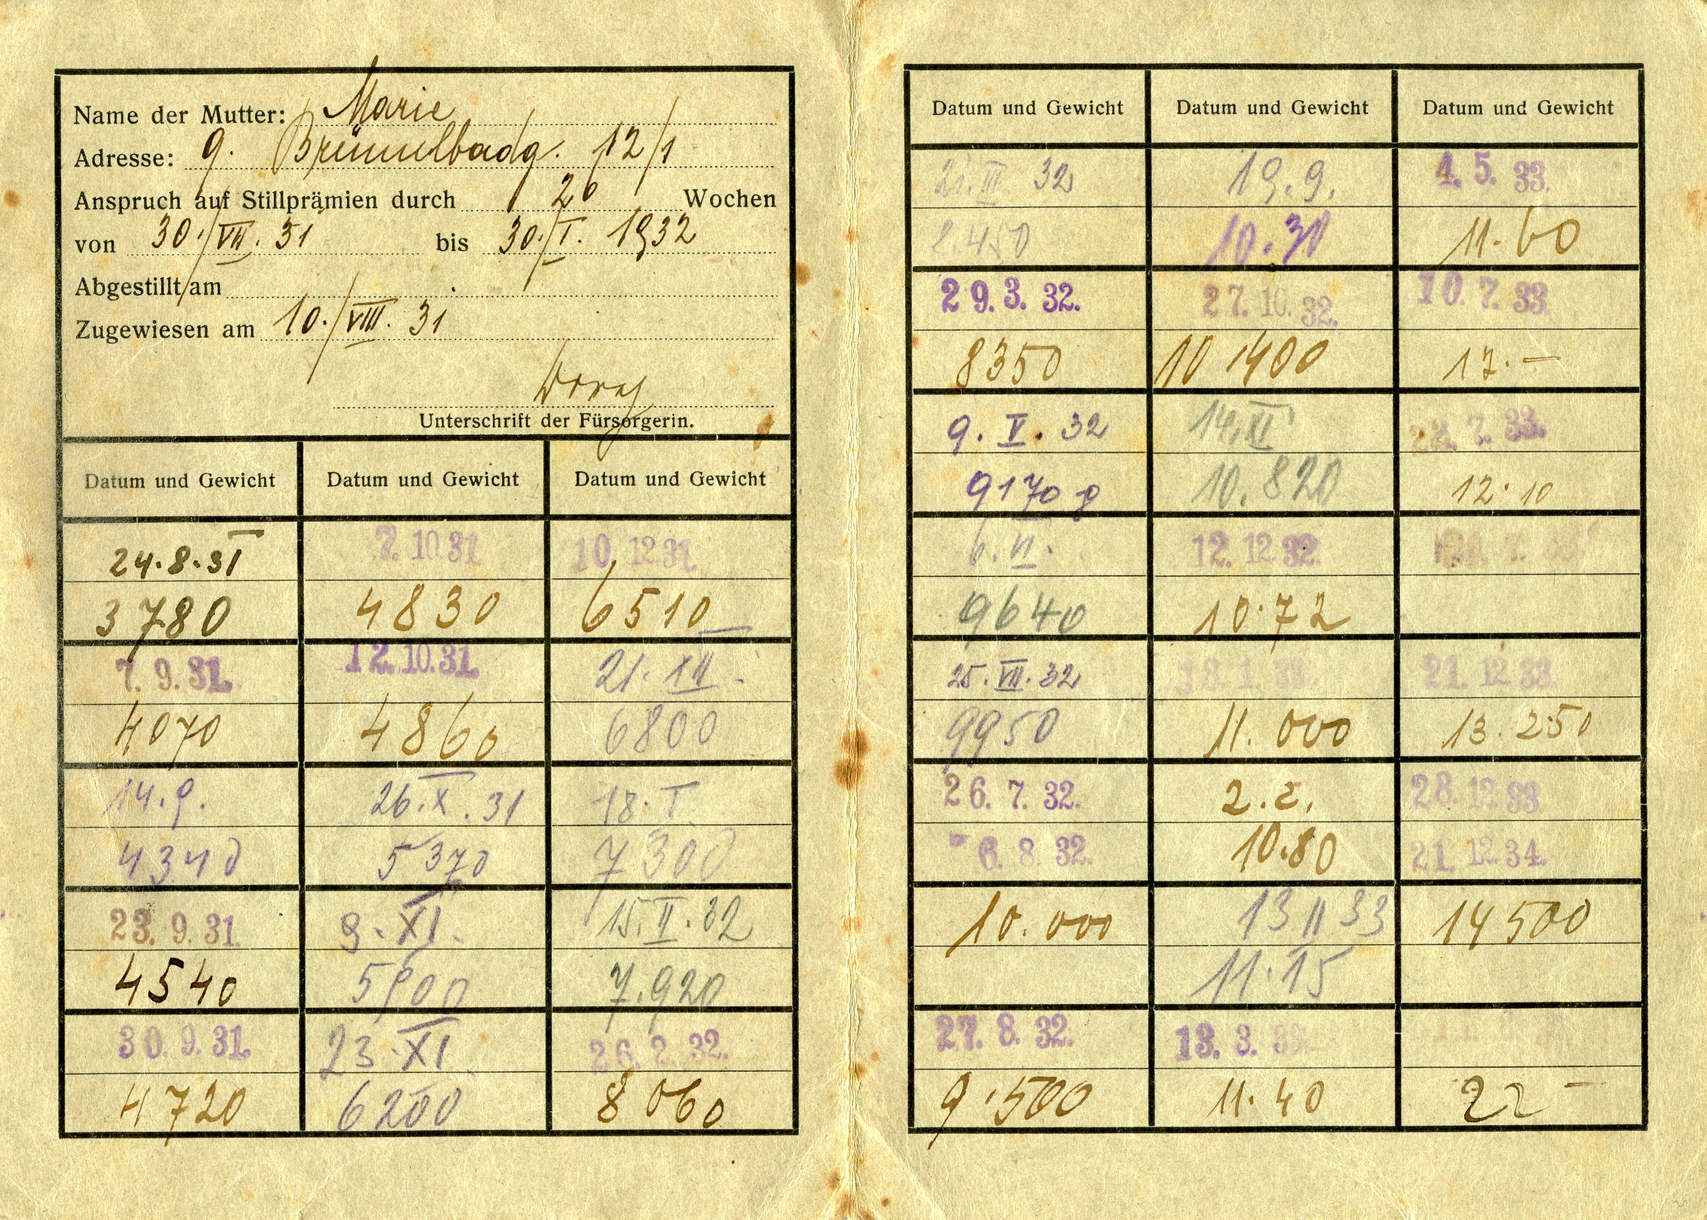 Name der Mutter: Marie
Adresse: 9. Brünnlbadg. 12/1
Anspruch auf Stillprämien durch 20 Wochen
von 30./VII. 31 bis 30./I. 1932
Abgestillt am
Zugewiesen am 10./VIII. 31
Unterschrift der Fürsorgerin.
Datum und Gewicht Datum und Gewicht Datum und Gewicht
24.8.31 7. 10. 31. 10. 12. 31.
3780 4830 6510
7. 9. 31. 12. 10. 31. 21. XII.
4070 4860 6800
14. 9. 26. X. 31 18. I.
4340 5370 7300
23. 9. 31. 9. XI. 15. II. 32
4540 5900 7.920
30. 9. 31. 23. XI. 26. 2. 32.
4720 6200 8060
Datum und Gewicht Datum und Gewicht Datum und Gewicht
21. III 32 19. 9. 4. 5. 33.
8450 10.30 11.60
29. 3. 32. 27. 10. 32. 10. 7. 33.
8350 10 400 12.–
9. V. 32 14. XI 7. 33.
9170 g 10.820 12.10
6. VI. 12. 12. 32.
9640 10.72
25. VII. 32 18. 1. 33. 21. 12. 33.
9950 11.000 13.250
26. 7. 32. 2. 2. 28. 12. 33.
6. 8. 32. 10.80 21. 12. 34.
10.000 13 II 33 14500
11.15
27. 8. 32. 13. 3. 33.
9.500 11.40 22 –